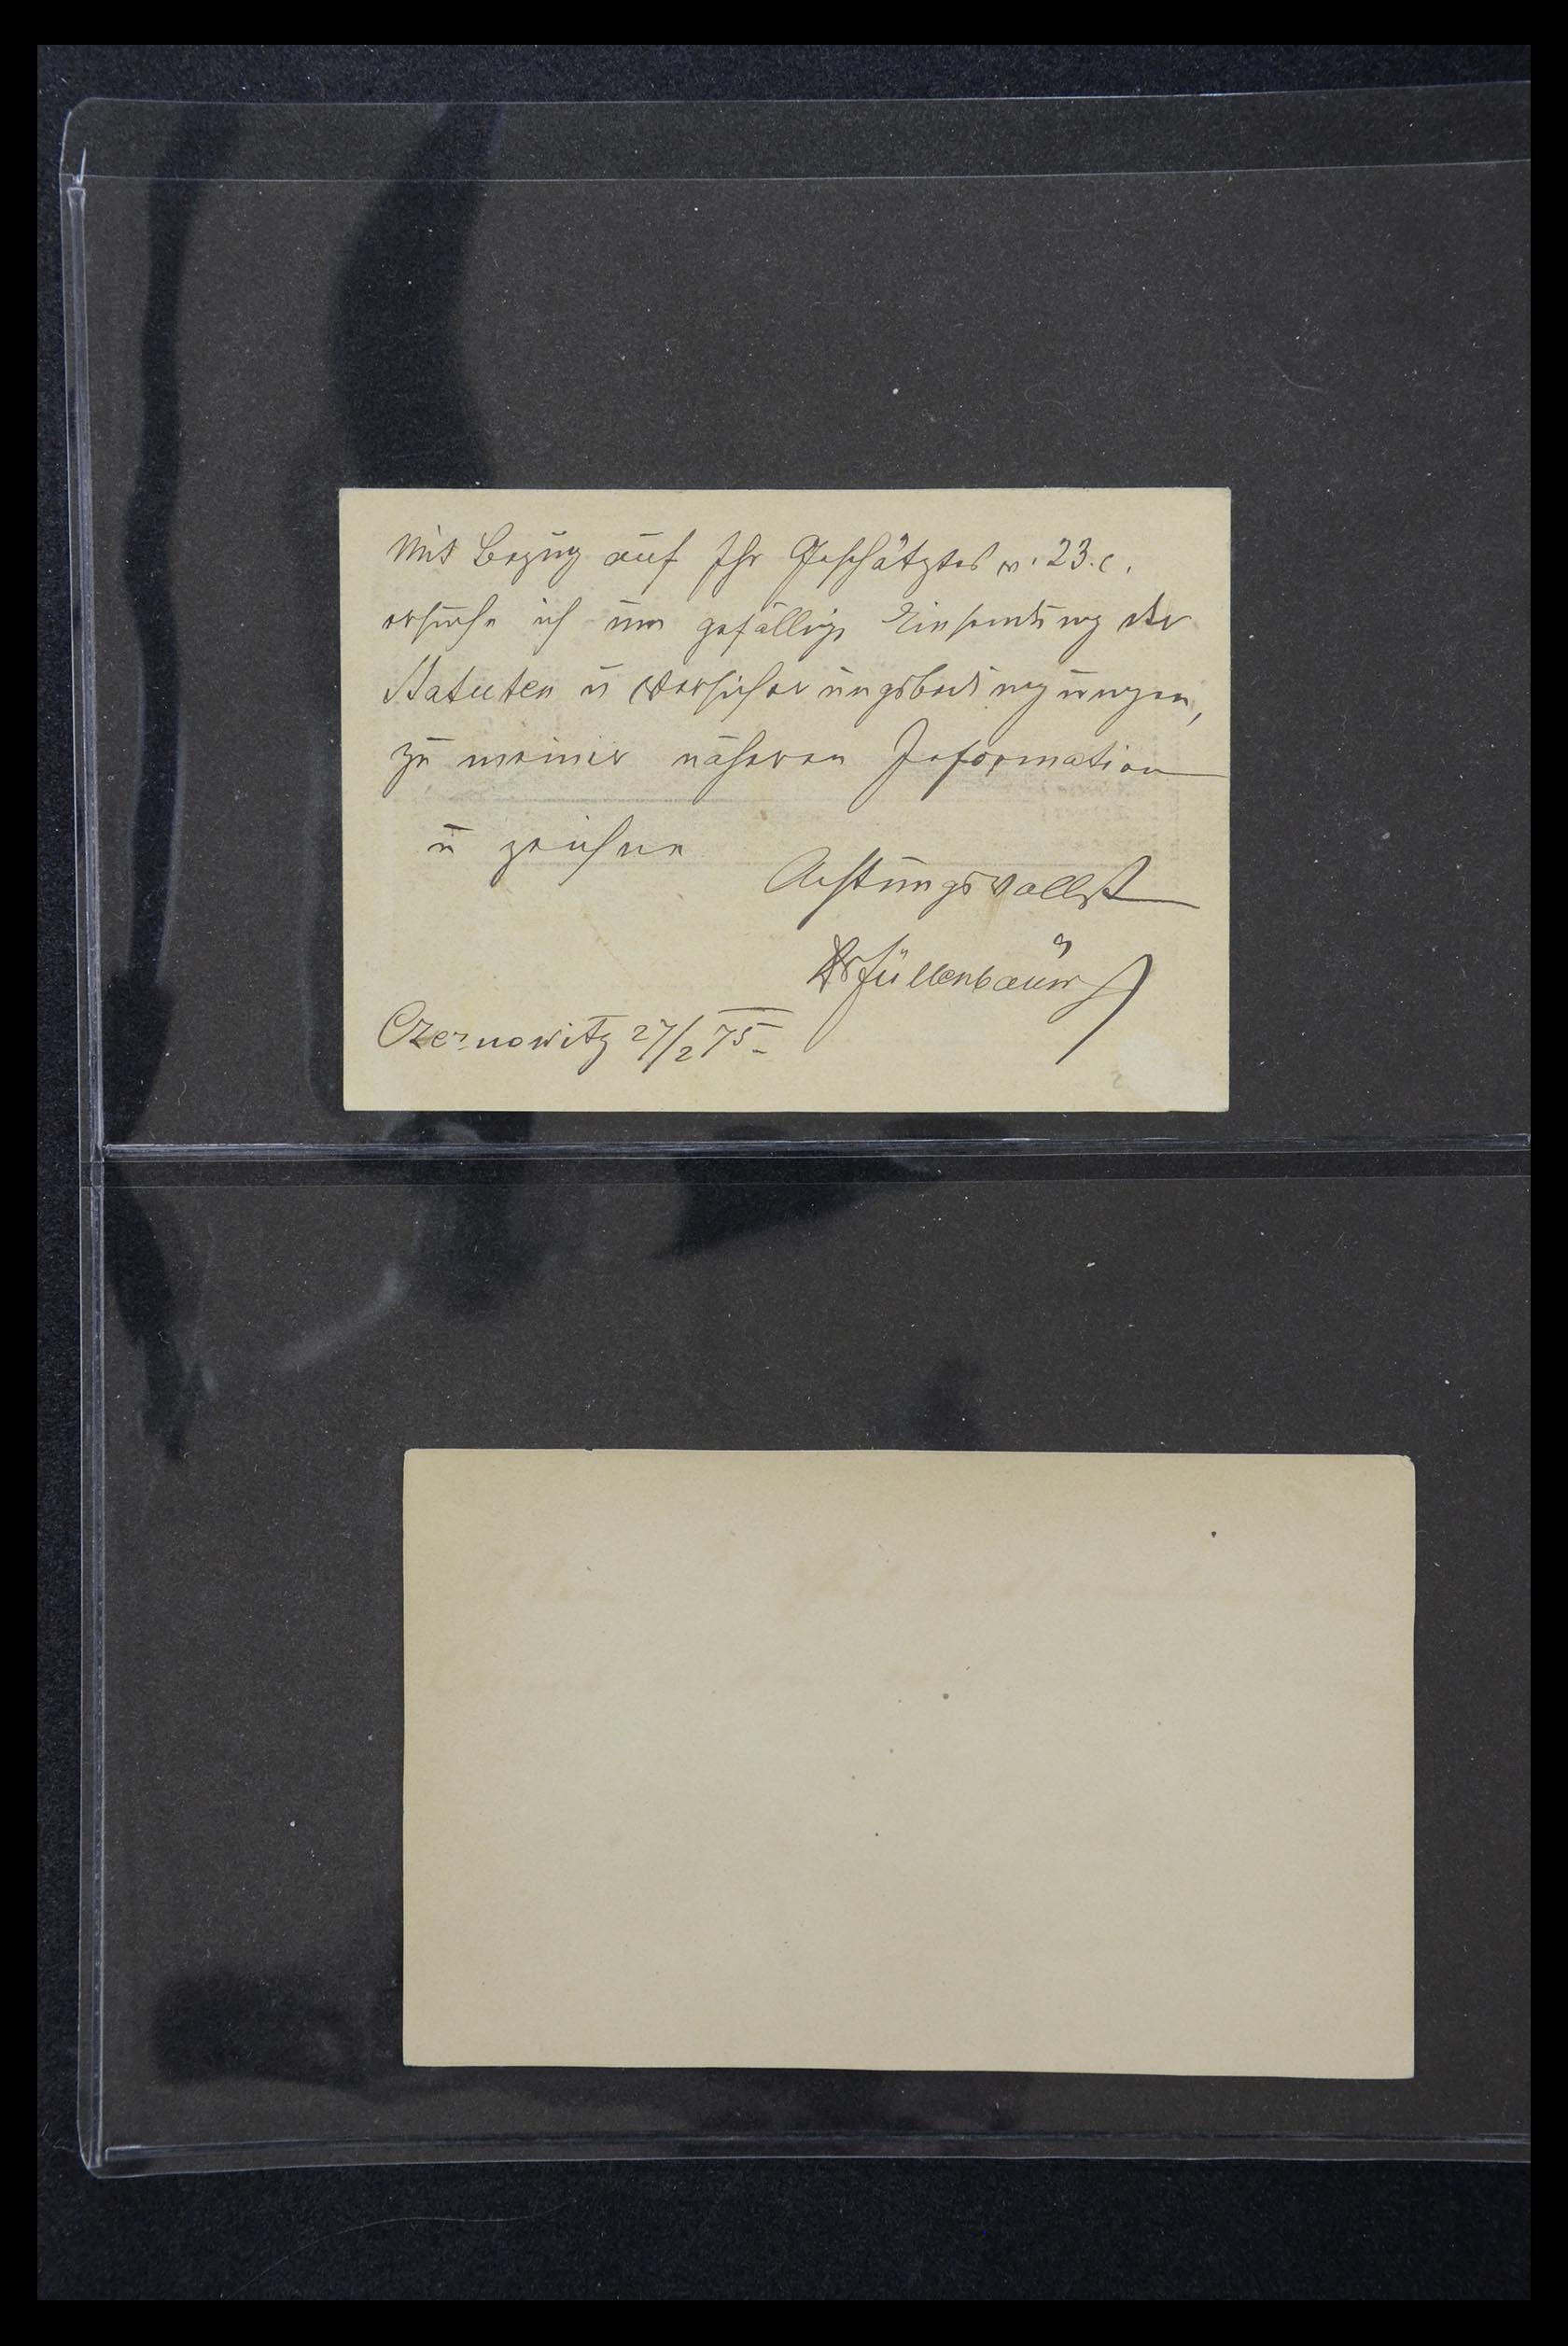 Mit Bezug auf Ihr Geschätztes v. 23. c.
ersuche ich um gefällige Einsendung der
Statuten u Versicherungsbedingungen,
zu meiner näheren Information
u zeichne
Achtungsvollst
Dr Füllenbaum
Czernowitz 27/2 75